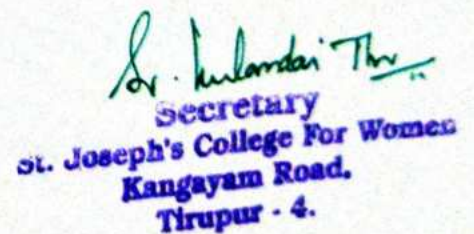 Sr. Kulandai
Secretary
St. Joseph's College For Women
Kangayam Road,
Tirupur - 4.